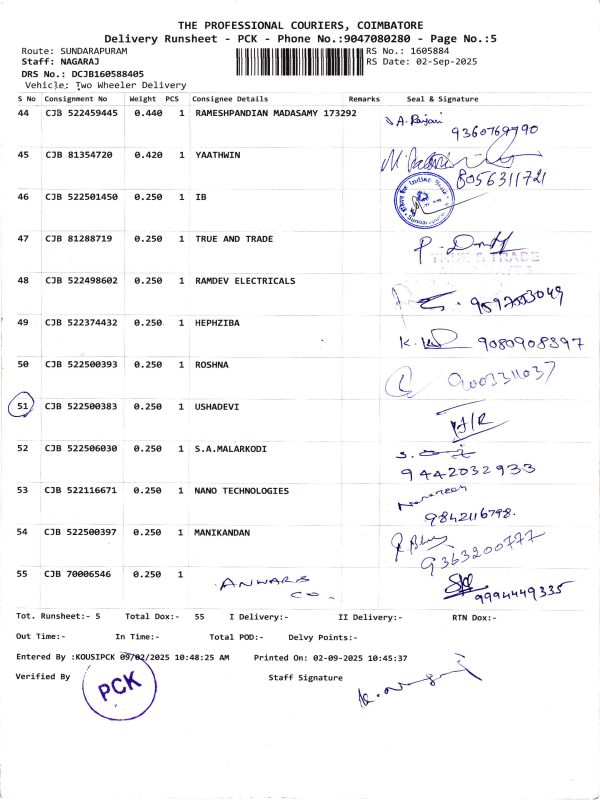 THE PROFESSIONAL COURIERS, COIMBATORE
Delivery Runsheet - PCK - Phone No.:9047080280 - Page No.:5
Route: SUNDARAPURAM RS No.: 1605884
Staff: NAGARAJ RS Date: 02-Sep-2025
DRS No.: DCJB160588405
Vehicle: Two Wheeler Delivery
S No Consignment No Weight PCS Consignee Details Remarks Seal & Signature
44 CJB 522459445 0.440 1 RAMESHPANDIAN MADASAMY 173292 A. Rajani
9360769790
45 CJB 81354720 0.420 1 YAATHWIN
8056311721
46 CJB 522501450 0.250 1 IB
47 CJB 81288719 0.250 1 TRUE AND TRADE
TRUE & TRADE
48 CJB 522498602 0.250 1 RAMDEV ELECTRICALS
49 CJB 522374432 0.250 1 HEPHZIBA
9080908397
50 CJB 522500393 0.250 1 ROSHNA
9003311037
51 CJB 522500383 0.250 1 USHADEVI
52 CJB 522506030 0.250 1 S.A.MALARKODI
9442032933
53 CJB 522116671 0.250 1 NANO TECHNOLOGIES
9842116798.
54 CJB 522500397 0.250 1 MANIKANDAN
9363200777
55 CJB 70006546 0.250 1 ANWARS
CO.
9994449335
Tot. Runsheet:- 5 Total Dox:- 55 I Delivery:- II Delivery:- RTN Dox:-
Out Time:- In Time:- Total POD:- Delvy Points:-
Entered By :KOUSIPCK 09/02/2025 10:48:25 AM Printed On: 02-09-2025 10:45:37
Verified By Staff Signature
PCK